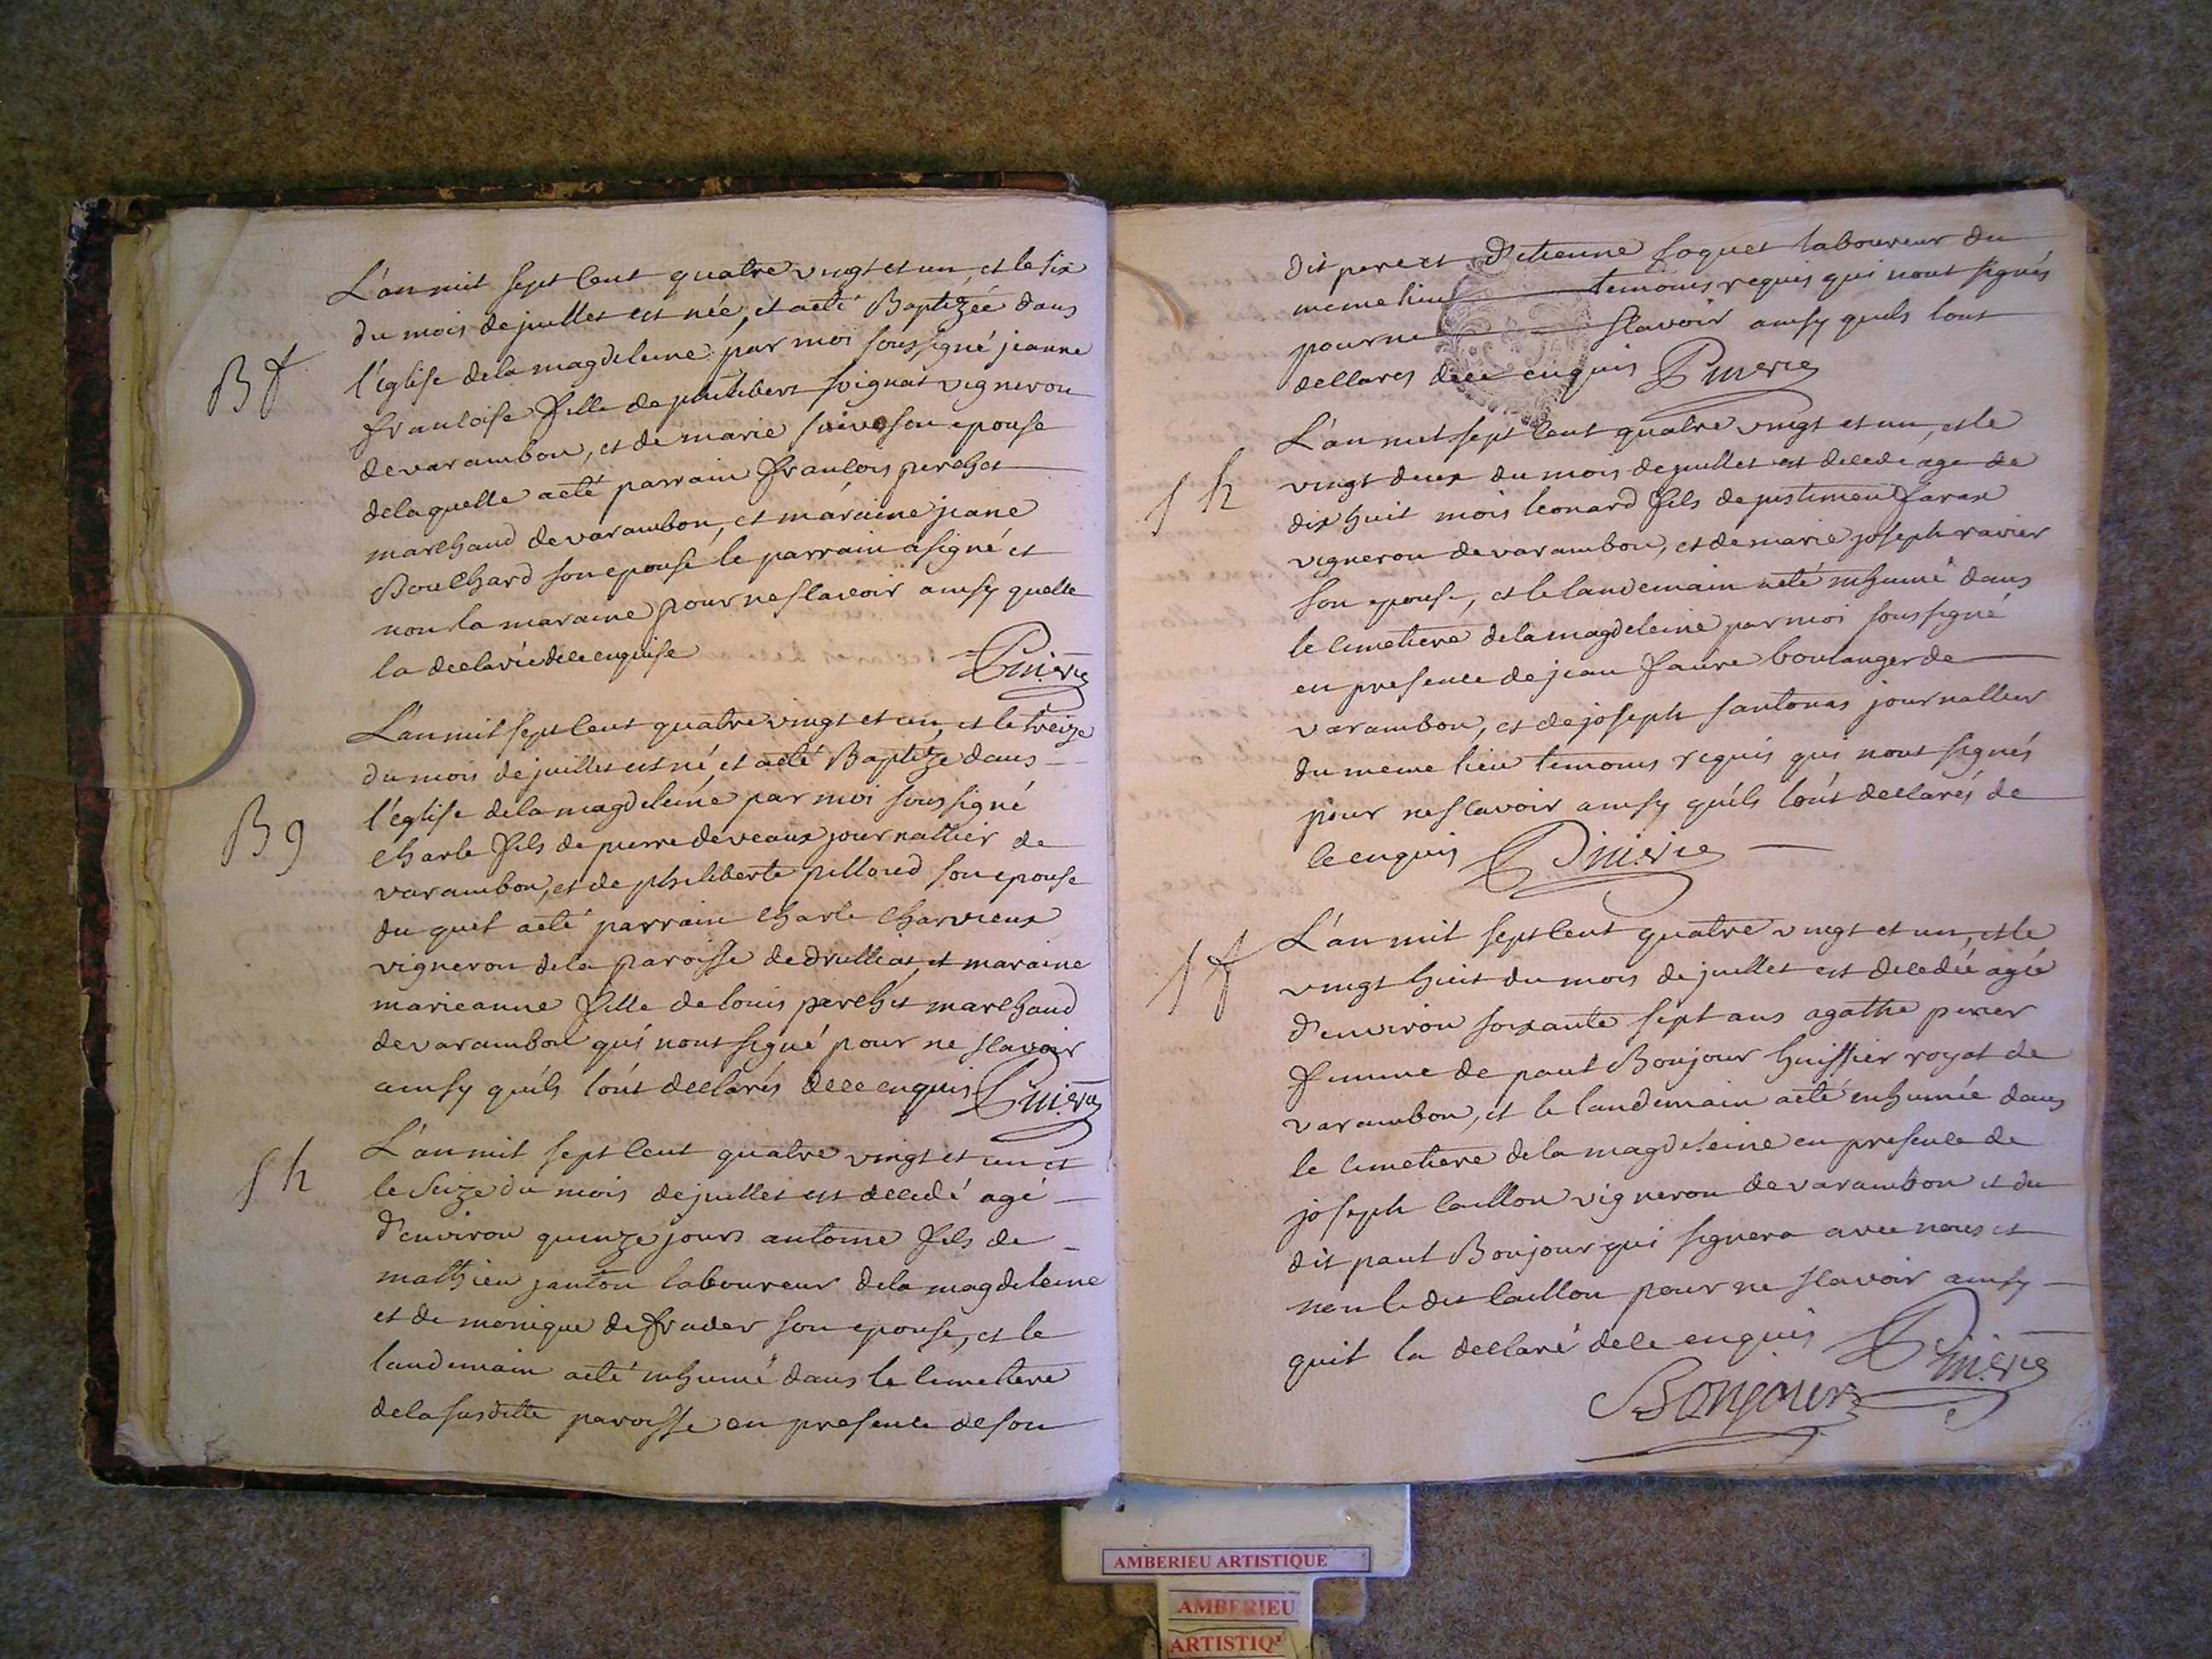 L'an mil sept cent quatre vingt et un, et le six
du mois de juillet est née, et a eté Baptizée dans
B f
l'église de la magdeleine par moi soussigné jeanne
francoise fille de philibert soignat vigneron
de varambon, et de marie son epouse
de laquelle a eté parrain francois perchet
marchand de varambon, et maraine jeane
Bouchard son epouse le parrain a signé et
non la maraine pour ne scavoir ainsy quelle
la declarée de ce enquise
L'an mil sept cent quatre vingt et un, et le treize
du mois de juillet est né, et a eté Baptizé dans
l'église de la magdeleine par moi soussigné
B g
charle fils de pierre deveaux journallier de
varambon, et de philiberte pilloud son epouse
du quel a eté parrain charle charvieux
vigneron de la paroisse de druilliat, et maraine
marieanne fille de louis perchet marchand
de varambon qui nont signé pour ne scavoir
ainsy quils lont declarés de ce enquis
L'an mil sept cent quatre vingt et un et
S h
le seize du mois de juillet est decedé agé
d'environ quinze jours antoine fils de
mathieu janton laboureur de la magdeleine
et de monique son epouse, et le
landemain a eté inhumé dans le cimetiere
de la susditte paroisse en presence de son
dit pere et d'etienne foquet laboureur du
meme lieu temoins requis qui nont signés
pour ne scavoir ainsy quils lont
declarés de ce enquis
L'an mil sept cent quatre vingt et un, et le
S h
vingt deux du mois de juillet est decedé age de
dix huit mois leonard fils de farax
vigneron de varambon, et de marie joseph ravier
son epouse, et le landemain a eté inhumé dans
le cimetiere de la magdeleine par moi soussigné
en presence de jean faure boulanger de
varambon, et de joseph santonas journallier
du meme lieu temoins requis qui nont signés
pour ne scavoir ainsy quils lont declarés de
ce enquis
L'an mil sept cent quatre vingt et un, et le
S f
vingt huit du mois de juillet est decedée agée
d'environ soixante sept ans agathe perier
femme de paul Bonjour huissier royal de
varambon, et le landemain a eté inhumée dans
le cimetiere de la magdeleine en presence de
joseph caillon vigneron de varambon et du
dit paul Bonjour qui signera avec nous et
non le dit caillon pour ne scavoir ainsy
quil la declaré de ce enquis
Bonjour
AMBERIEU ARTISTIQUE
AMBERIEU
ARTISTIQ